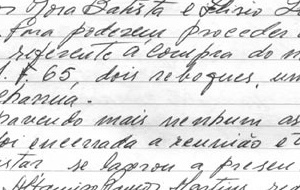 Jose Batista e Elisio
para poderem proceder
referente à compra do
F 65, dois reboques, um
charrua.
havendo mais nenhum as
foi encerrada a reunião e
se lavrou a presen
Martins